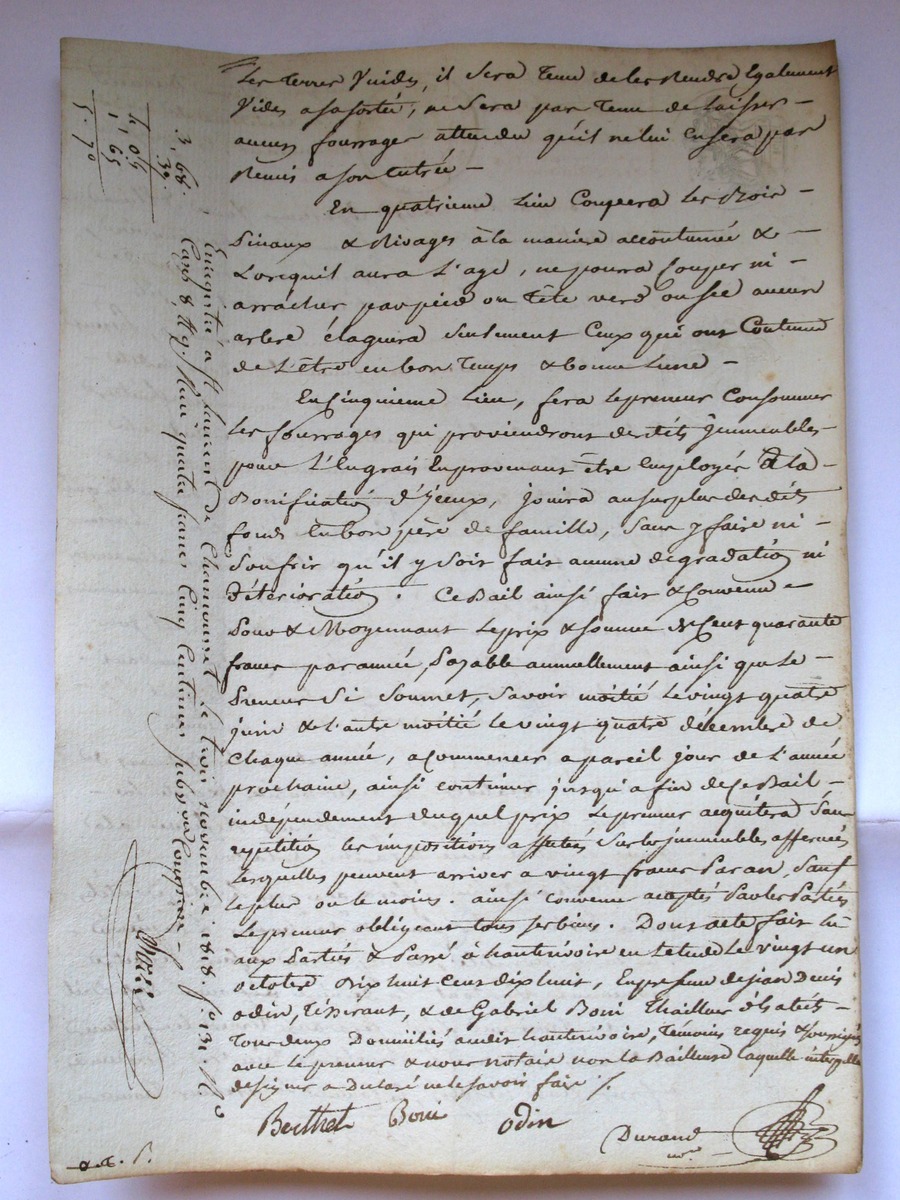 les terres Vuides, il Sera tenu de les Rendre Egalement
Vides a sa sortie, ne Sera pas tenu de laisser
aucuns fourrages attendu qu'il ne lui en sera pas
Remis a son Entrée
En quatrieme Lieu Coupera les Bois
Sinaux & Rivages à la maniere accoutumée &
Lorsquil aura L'age, ne poura Couper ni
arracher par pied ou tête verd ou sec aucun
arbre élaguera Seulement Ceux qui ont Coutume
de L'être en bon Temps & bonne Lune
En Cinquieme Lieu, fera le preneur Consommer
les fourrages qui proviendront desdits Jmmeubles
pour L'Engrais En provenant être Employés à la
Bonification d'Yceux, jouira au surplus desdits
fonds En bon père de famille, Sans y faire ni
Soufrir qu'il y Soit fait aucune dégradation ni
Détérioration. Ce Bail ainsi fait & Convenu
Pour & Moyennant le prix & somme de Cent quarante
francs par année, payable annuellement ainsi que le
Preneur Si Soumet, Savoir moitié le vingt quatre
juin & L'autre moitié le vingt quatre décembre de
Chaque année, a Commencer a pareil jour de L'année
prochaine, ainsi continuer jusqu'a fin de Ce Bail
indépendement duquel prix le preneur acquitera Sans
repetition les impositions affectées Sur les jmmeubles affermés
lesquelles peuvent arriver a vingt francs Par an, Sauf
le plus ou le moins. ainsi Convenu accepté Par les Parties
le preneur obligeant tous ses biens. Dont acte fait lu
aux Parties & Passé à hauterivoire en Letude le vingt un
octobre Dix huit Cent dix huit, En presence de jean Denis
odin, Tisserant, & de Gabriel Boni Tailleur d'habits
Tous deux Domiciliés audit hauterivoire, Temoins requis & soussignés
avec le preneur & nous notaire non la Bailleuse laquelle interpellée
de signer a Déclaré ne le savoir faire ./.
Berthet Boni odin
Durand
nre
Enregistré à St laurent de Chamousset le trois novembre 1818. fo 131 Ro
Case 8 Reçu quatre francs Cinq Centimes Subvon Comprise
3, 68.
37.
4, 05
1 65
5. 70